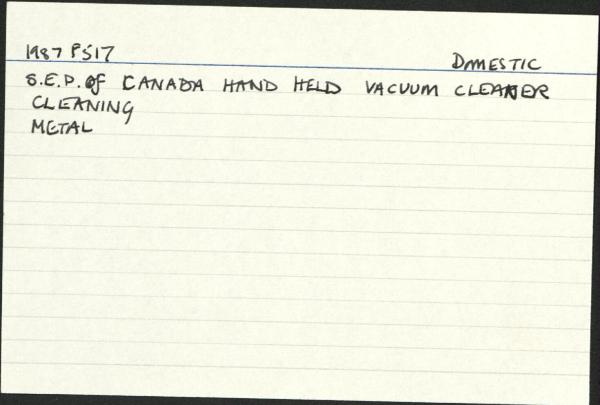 1987 P517 DOMESTIC
S.E.P. of CANADA HAND HELD VACUUM CLEANER
CLEANING
METAL